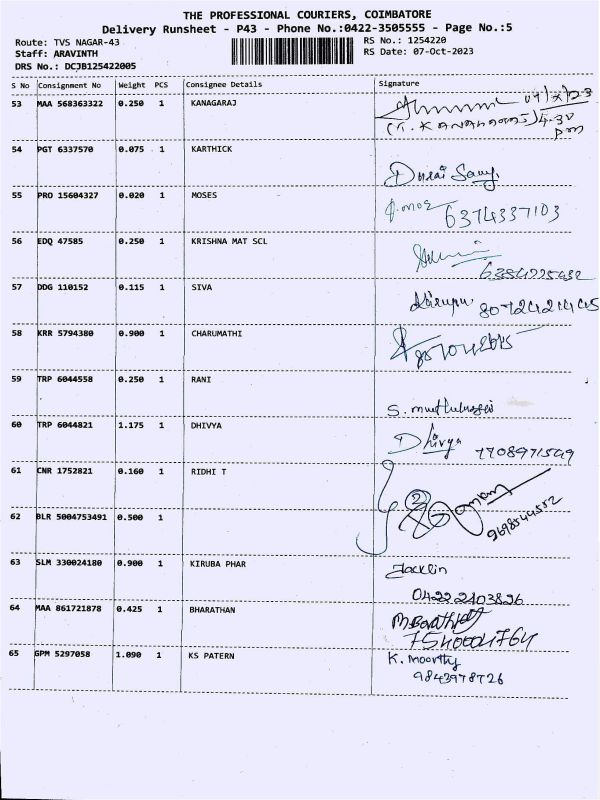 THE PROFESSIONAL COURIERS, COIMBATORE
Delivery Runsheet - P43 - Phone No.:0422-3505555 - Page No.:5
Route: TVS NAGAR-43 RS No.: 1254220
Staff: ARAVINTH RS Date: 07-Oct-2023
DRS No.: DCJB125422005
S No Consignment No Weight PCS Consignee Details Signature
53 MAA 568363322 0.250 1 KANAGARAJ
4-30
pm
54 PGT 6337570 0.075 1 KARTHICK
Durai Samy
55 PRO 15604327 0.020 1 MOSES
6374337103
56 EDQ 47585 0.250 1 KRISHNA MAT SCL
57 DDG 110152 0.115 1 SIVA
58 KRR 5794380 0.900 1 CHARUMATHI
59 TRP 6044558 0.250 1 RANI
S.
60 TRP 6044821 1.175 1 DHIVYA
Dhivya 7708971549
61 CNR 1752821 0.160 1 RIDHI T
2
62 BLR 5004753491 0.500 1
9698544552
63 SLM 330024180 0.900 1 KIRUBA PHAR
Jacklin
04222403826
64 MAA 861721878 0.425 1 BHARATHAN
65 GPM 5297058 1.090 1 KS PATERN
K. Moorthy
9843978726